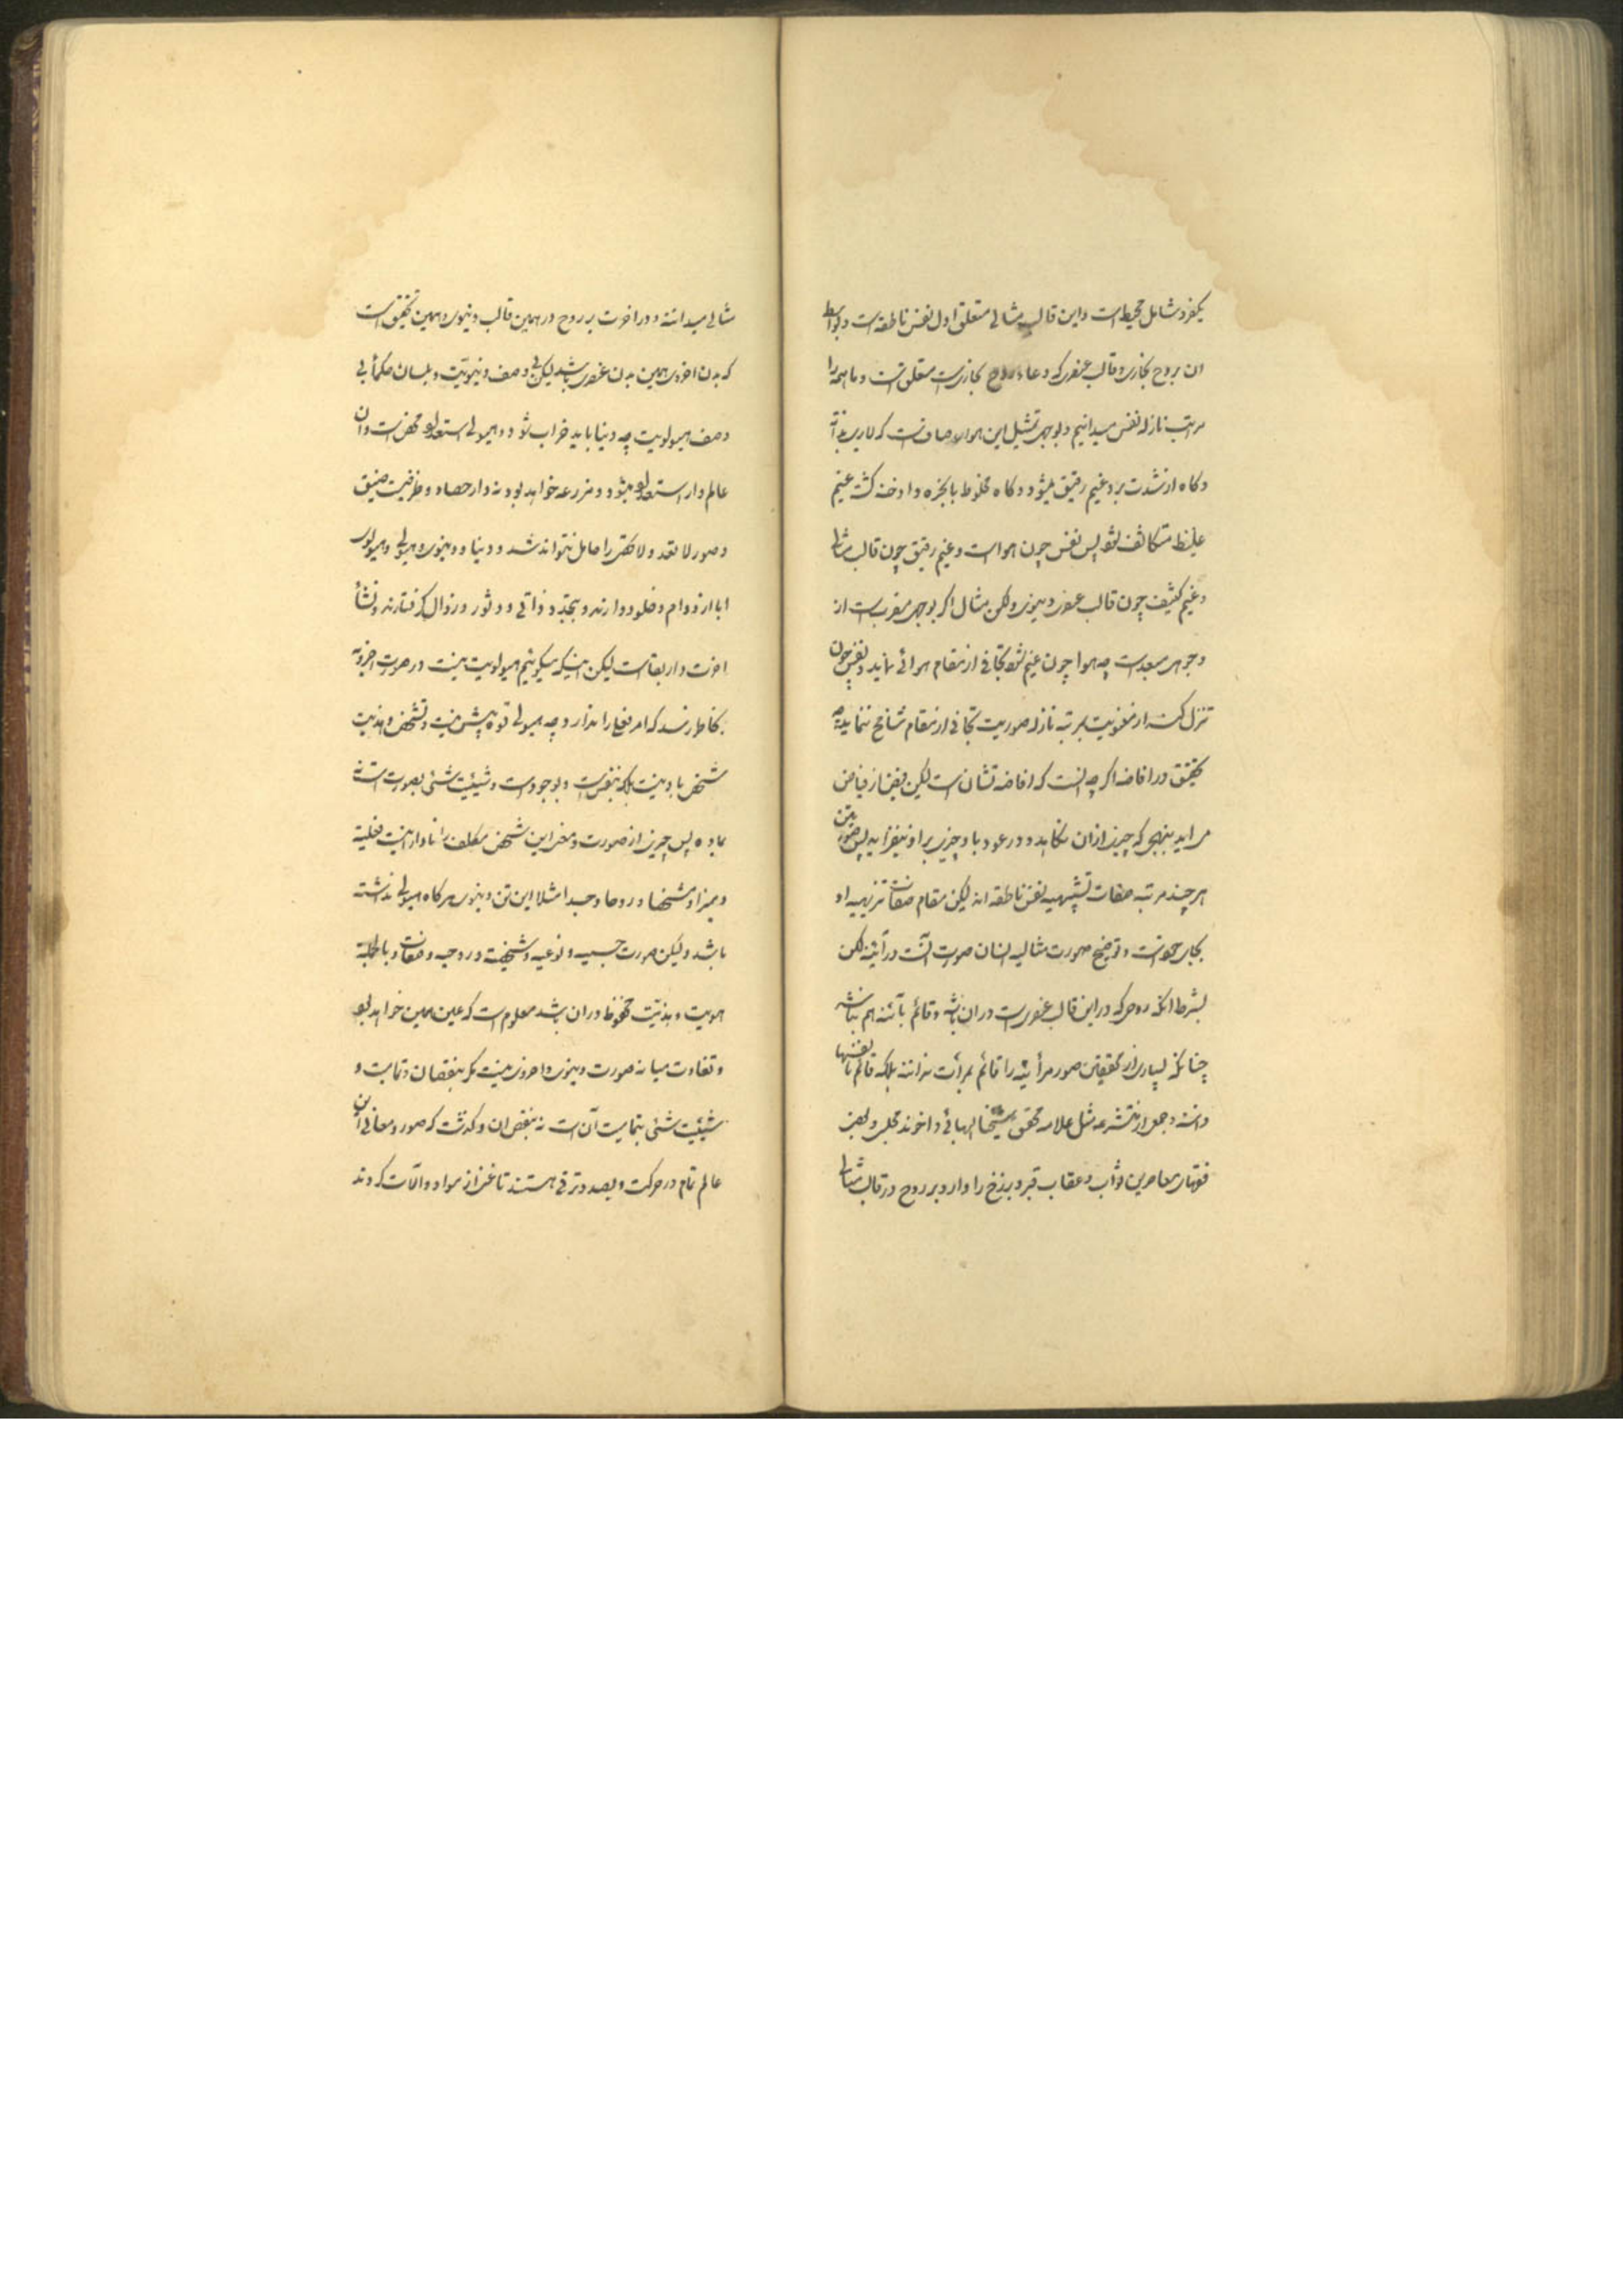 یکفرد شامل محیط است و این قالب مثالی متعلق اول نفس ناطقه است و بواسطه
ان بروح بخاری و قالب عنصری که وعاء روح بخاریست متعلق است و ما همه را
مرتب نازله نفس میدانیم و بوجهی تمثیل این هواء صافست که لا یری بذاته
و کاه از شدت برد غیم رقیق میشود و کاه مخلوط با بخره و ادخنه کشته غیم
غلیظ متکاثف شود پس نفس چون هواست و غیم رقیق چون قالب مثالی
و غیم کثیف چون قالب عنصری دنیوی ولکن مثال اکر بوجهی مقربست از
وجوهی مبعد است چه هوا چون غیم شود تجافی از مقام هوائی نماید و نفس چون
تنزل کند از معنویت بمرتبه نازله صوریت تجافی از مقام شامخ ننماید چه
تحقیق در افاضه اکر چه آنست که افاضه تشان است لیکن فیض از فیاض
می آید بنهجی که چیزی از ان نکاهد و در عود باو چیزی بر او نیفزاید پس صور بدن
هر چند مرتبه صفات تشبیهیه نفس ناطقه اند لیکن مقام صفات تنزیهیه او
بجای خود است و توضیح صورت مثالیه انسان صورت آنست در آینه لکن
بشرط انکه روحی که در این قالب عنصریست در ان باشد و قائم بآئنه هم نباشد
چنانکه بسیاری از محققین صور مرآتیه را قائم بمرآت ندانند بلکه قائم بانفسها
دانند و جمعی از متشرعه مثل علامه محقق شیخنا البهائی و اخوند مجلسی و بعض
فقهای معاصرین ثواب و عقاب قبر و برزخ را وارد بر روح در قالب مثالی
مثالی میدانند و در اخرت بر روح در همین قالب دنیوی و همین تحقیق است
که بدن اخروی همین بدن عنصری باشد لیکن بی وصف دنیویت و بلسان حکما بی
وصف هیولویت چه دنیا باید خراب شود و هیولی استعداد محض است و ان
عالم دار استعداد میشود و مزرعه خواهد بود نه دار حصاد و ظرفیت ضیق
و صور لا تعد و لا تحصی را حامل نتواند شد و دنیا و دنیوی و هیولی و هیولوی
ابا از دوام و خلود دارند و بتجدد ذاتی و دثور و زوال کرفتارند و نشأه
اخرت دار بقاست لیکن اینکه میکوئیم هیولویت نیست در صورت اخرویه
بخاطر نرسد که امر فعلی را ندارد چه هیولی قوه بیش نیست و تشخص و هذیت
شخص باو نیست بلکه بنفس است و بوجود است و شیئیت شئی بصورت است نه
بماده پس چیزی از صورت و معنی این شخص مکلف را نادار نیست فعلیه
و ممیزا و مشخصا و روحا و جسدا مثلا این تن دنیوی هر کاه هیولی نداشته
باشد ولیکن صورت جسمیه و نوعیه و شخصیه و روحیه و صفات و بالجمله
هویت و هذیت محفوظ در ان باشد معلوم است که عین همین خواهد بود
و تفاوت میانه صورت دنیوی و اخروی نیست مکر بنقصان و تمامیت و
شیئیت شئی بتمامیت آن است نه بنقص ان و کذشت که صور و معانی این
عالم تمام در حرکت و بصدد ترقی هستند تا غنی از مواد و الات کردند